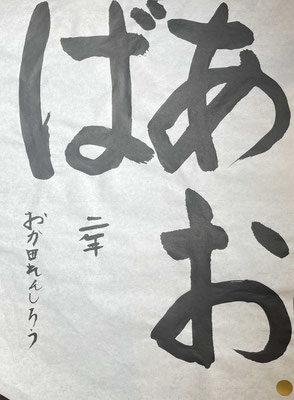 あお
ば
二年
おか田れんしろう